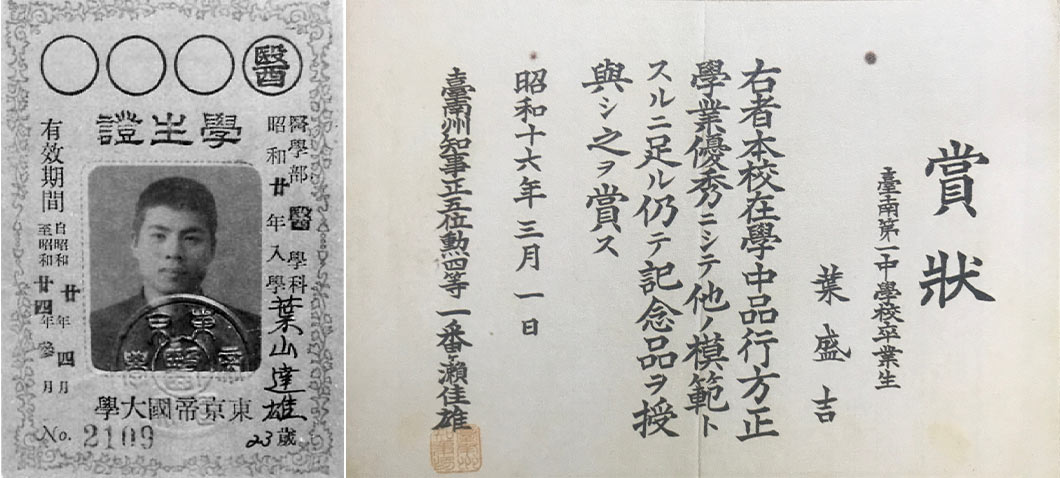 ○○○醫
學生證
醫學部醫學科
昭和廿年入學
葉山達雄
23歲
有效期間
自昭和廿年四月
至昭和廿四年參月
東京帝國大學
No. 2109
賞狀
臺南第一中學校卒業生
葉盛吉
右者本校在學中品行方正
學業優秀ニシテ他ノ模範ト
スルニ足ル仍テ記念品ヲ授
與シ之ヲ賞ス
昭和十六年三月一日
臺南州知事正五位勲四等一番ヶ瀨佳雄